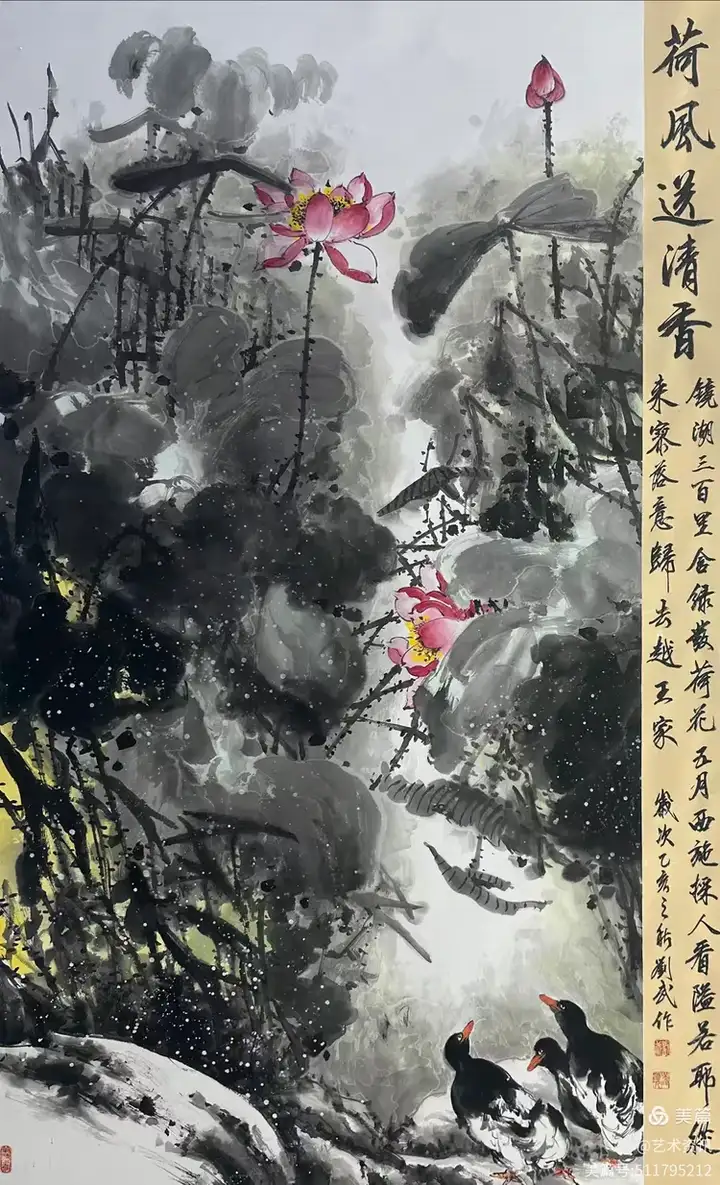 荷風送清香
镜湖三百里含绿發荷花五月西施採人看隘若耶從
来寮落意歸去越王家
歲次乙亥之秋劉武作
美篇
@艺术
美篇号:511795212